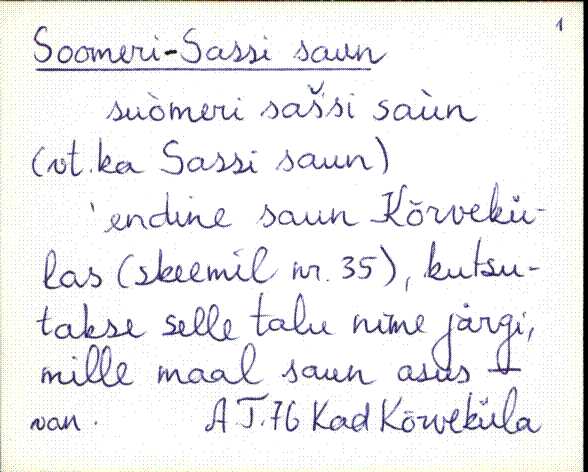 1
Soomeri-Sassi saun
suòmeri sašsi saùn
(vt. ka Sassi saun)
'endine saun Kõrvekü-
las (skeemil nr. 35), kutsu-
takse selle talu nime järgi,
mille maal saun asus –
van. A T. 76 Kad Kõrveküla